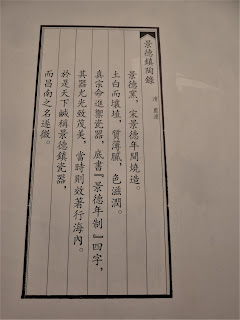 景德鎮陶錄
清 藍浦
景德窯，宋景德年間燒造。
土白而壤埴，質薄膩，色滋潤。
真宗命進禦瓷器，底書『景德年制』四字，
其器尤光致茂美，當時則效著行海內。
於是天下鹹稱景德鎮瓷器，
而昌南之名遂微。